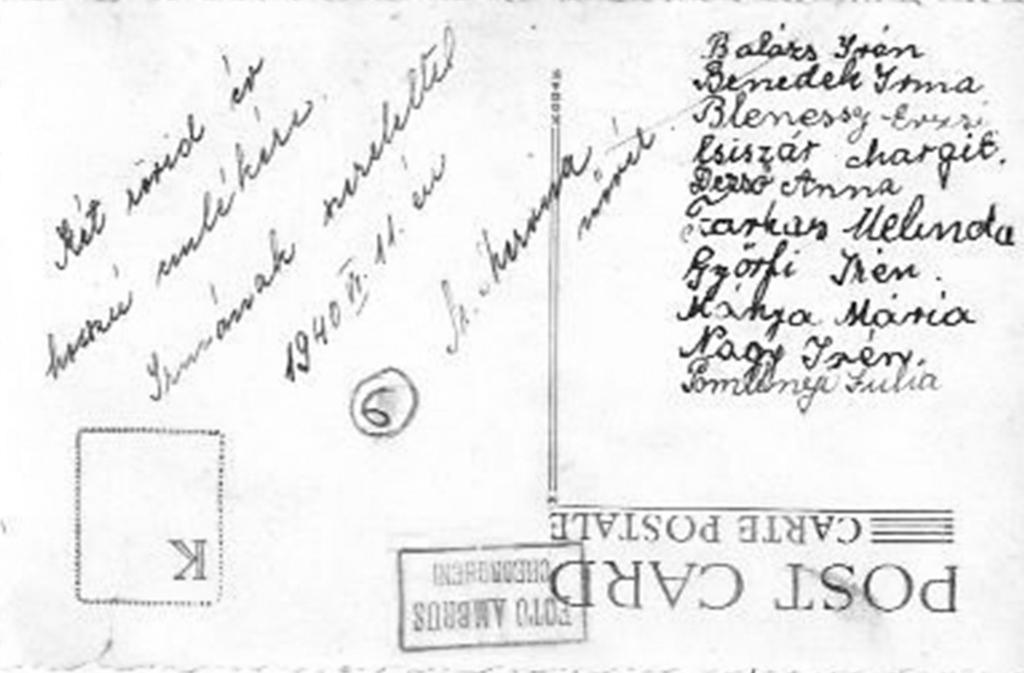 Két rövid év
hosszú emlékére
Irmának szeretettel
1940 VI. 11. én
nővér
6
Balázs Irén
Benedek Irma
Blenessy Erzsi
Csiszár Margit.
Dezső Anna
Farkas Melinda
Győrfi Irén.
Mánya Mária
Nagy Irén.
Julia
CARTE POSTALE
POST CARD
K
FOTO AMBRUS
GHEORGHENI